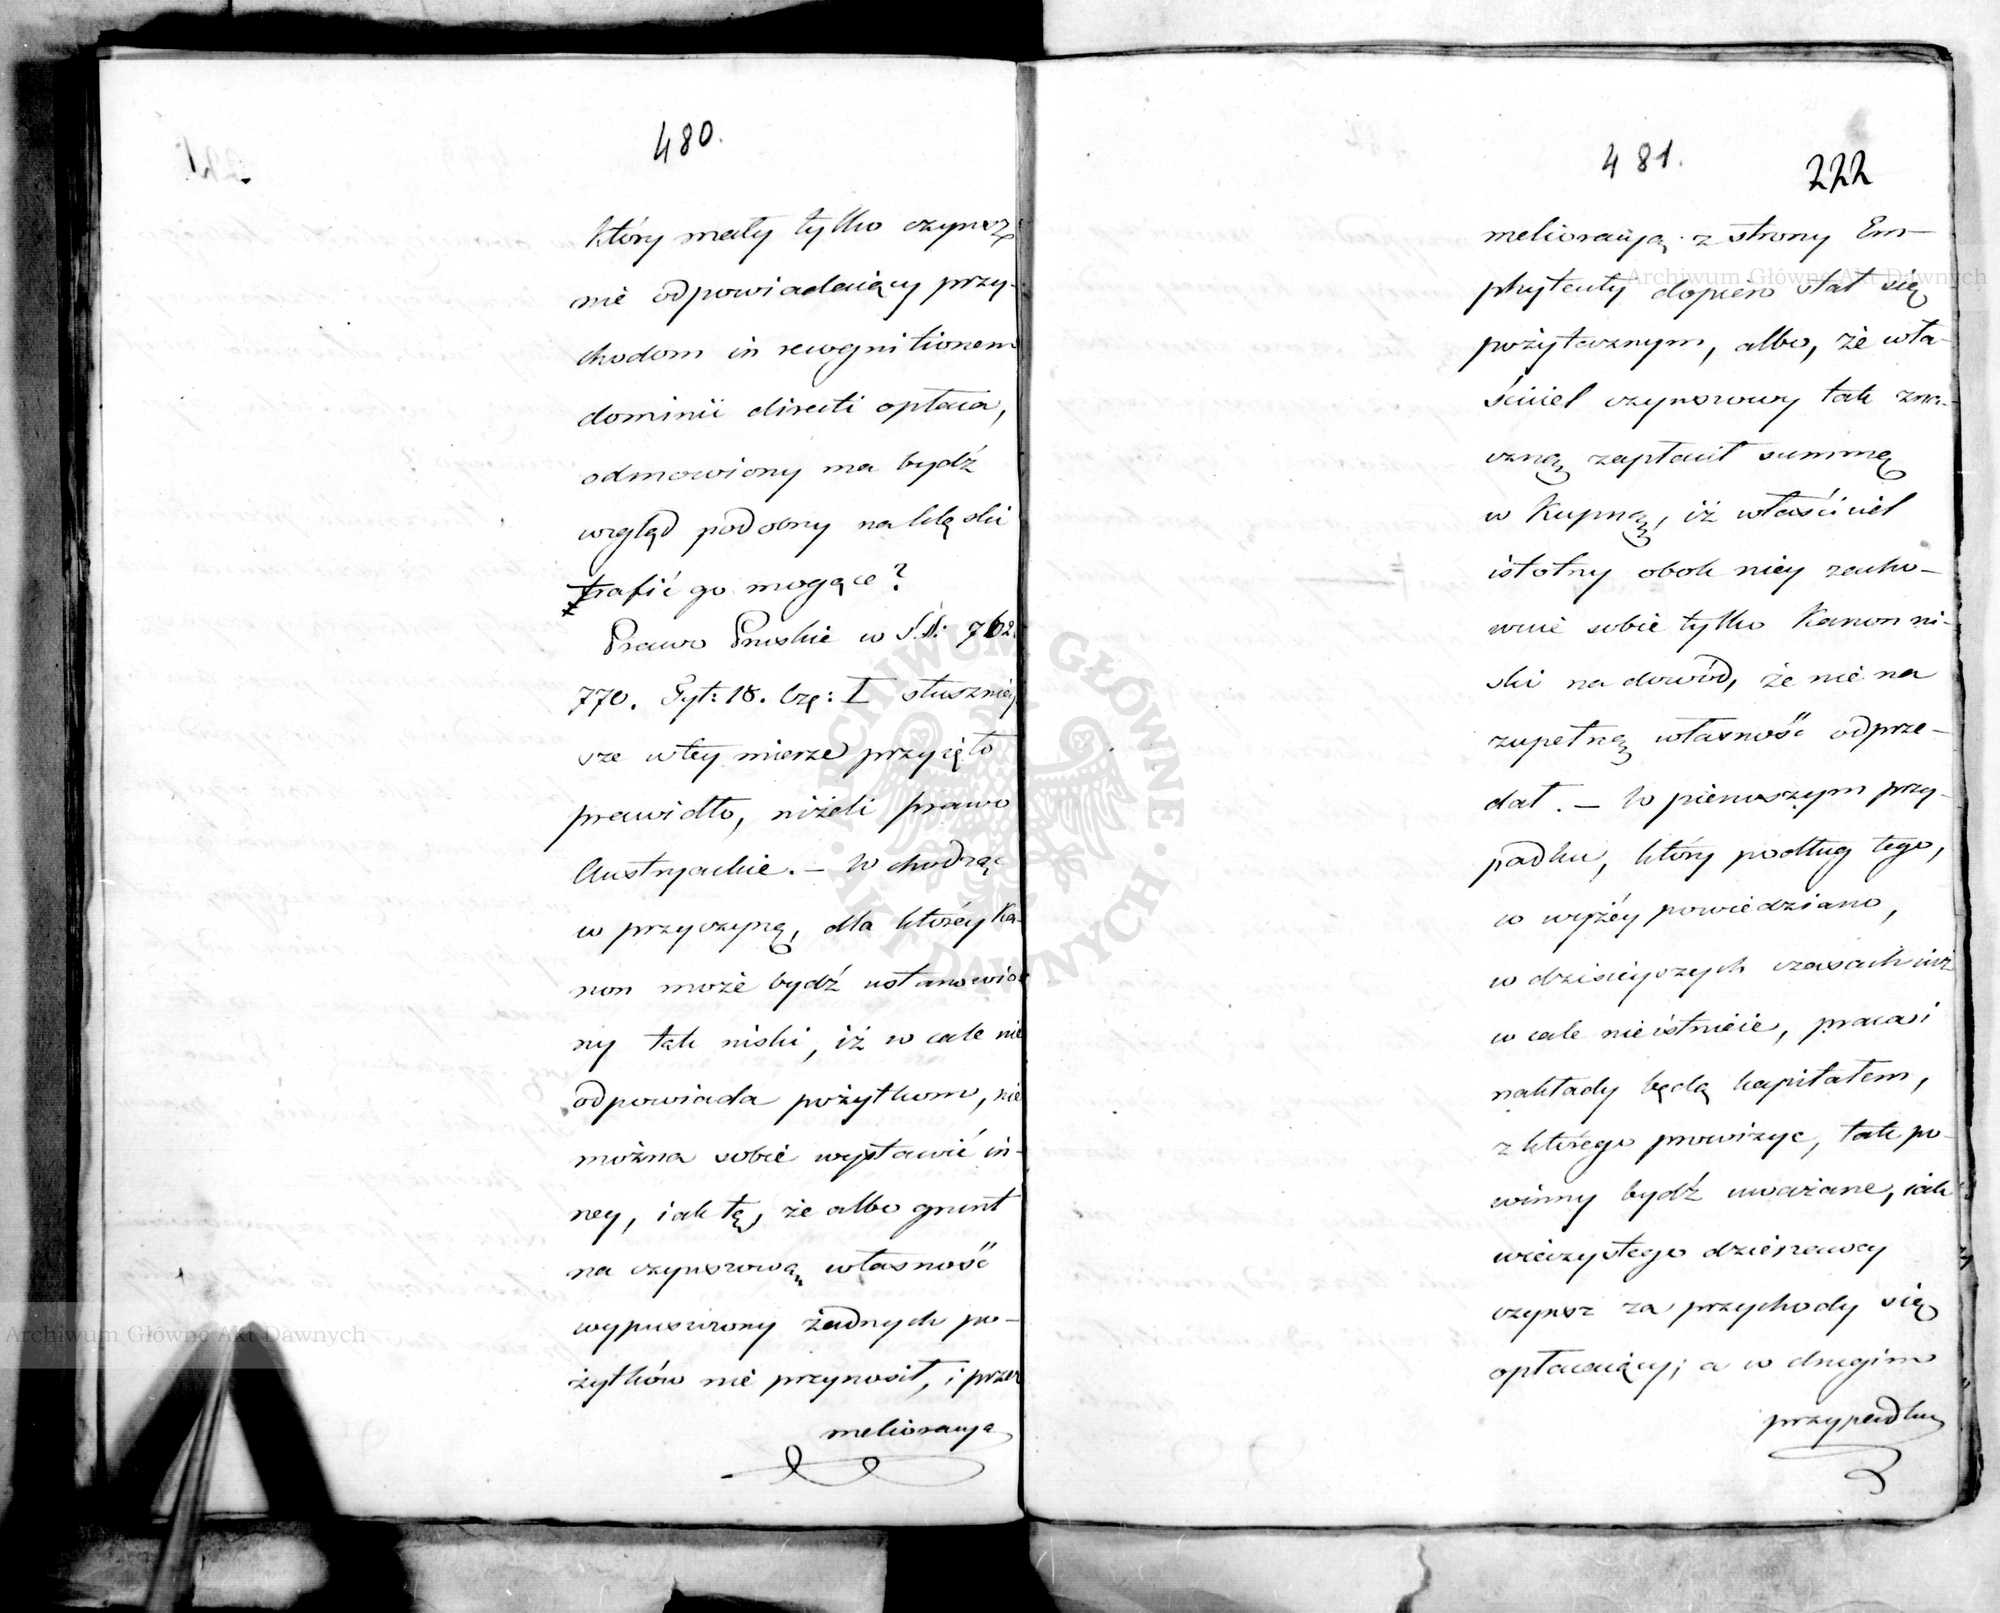 480.
który mały tylko czynsz
nie odpowiadaiący przy-
chodom in recognitionem
dominii directi opłaca,
odmowiony ma bydź
wzgląd podobny na klęski
trafić go mogące?
Prawo Pruskie w §.§: 762.
770. Tyt: 18. Czę: I słuszniey-
sze w tey mierze przyięło
prawidło, niżeli prawo
Austryackie. – Wchodząc
w przyczynę, dla któréy ka-
non może bydź ustanowio-
ny tak niski, iż wcale nie
odpowiada pożytkom, nie
można sobie wystawić in-
ney, iak tę, że albo grunt
na czynszową własność
wypuszczony żadnych po-
żytków nie przynosił, i przez
melioracyą
481.
222
melioracyą z strony Em-
phyteuty dopiero stał się
pożytecznym, albo, że wła-
ściciel czynszowy tak zna-
czną zapłacił summę
w Kupnę, iż właściciel
istotny obok niey zacho-
wuie sobie tylko Kanon ni-
ski na dowód, że nie na
zupełną własność odprze-
dał. – W pierwszym przy-
padku, który podług tego,
co wyżéy powiedziano,
w dzisieyszych czasach iuż
wcale nieistnieie, praca i
nakłady będą kapitałem,
z którego prowizye, tak po-
winny bydź uważane, iak
wieczystego dzierżawcy
czynsz za przychody się
opłacaiący; a w drugim
przypadku
Archiwum Główne Akt Dawnych
Archiwum Główne Akt Dawnych
ARCHIWUM GŁÓWNE · AKT DAWNYCH ·